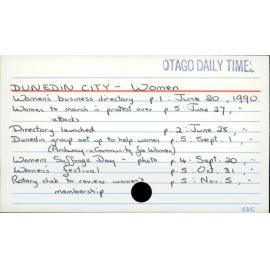 OTAGO DAILY TIMES
DUNEDIN CITY - Women
Women's business directory p.1: June 20, 1990
Women to march in protest over p.5: June 27, "
attacks
Directory launched p.2: June 28, "
Dunedin group set up to help women p.5: Sept. 1, "
(Archway - a Community for Women)
Womens Suffrage Day - photo p.4: Sept. 20, "
Womens festival p.5: Oct. 31, "
Rotary club to review women's p.5: Nov. 5, "
membership